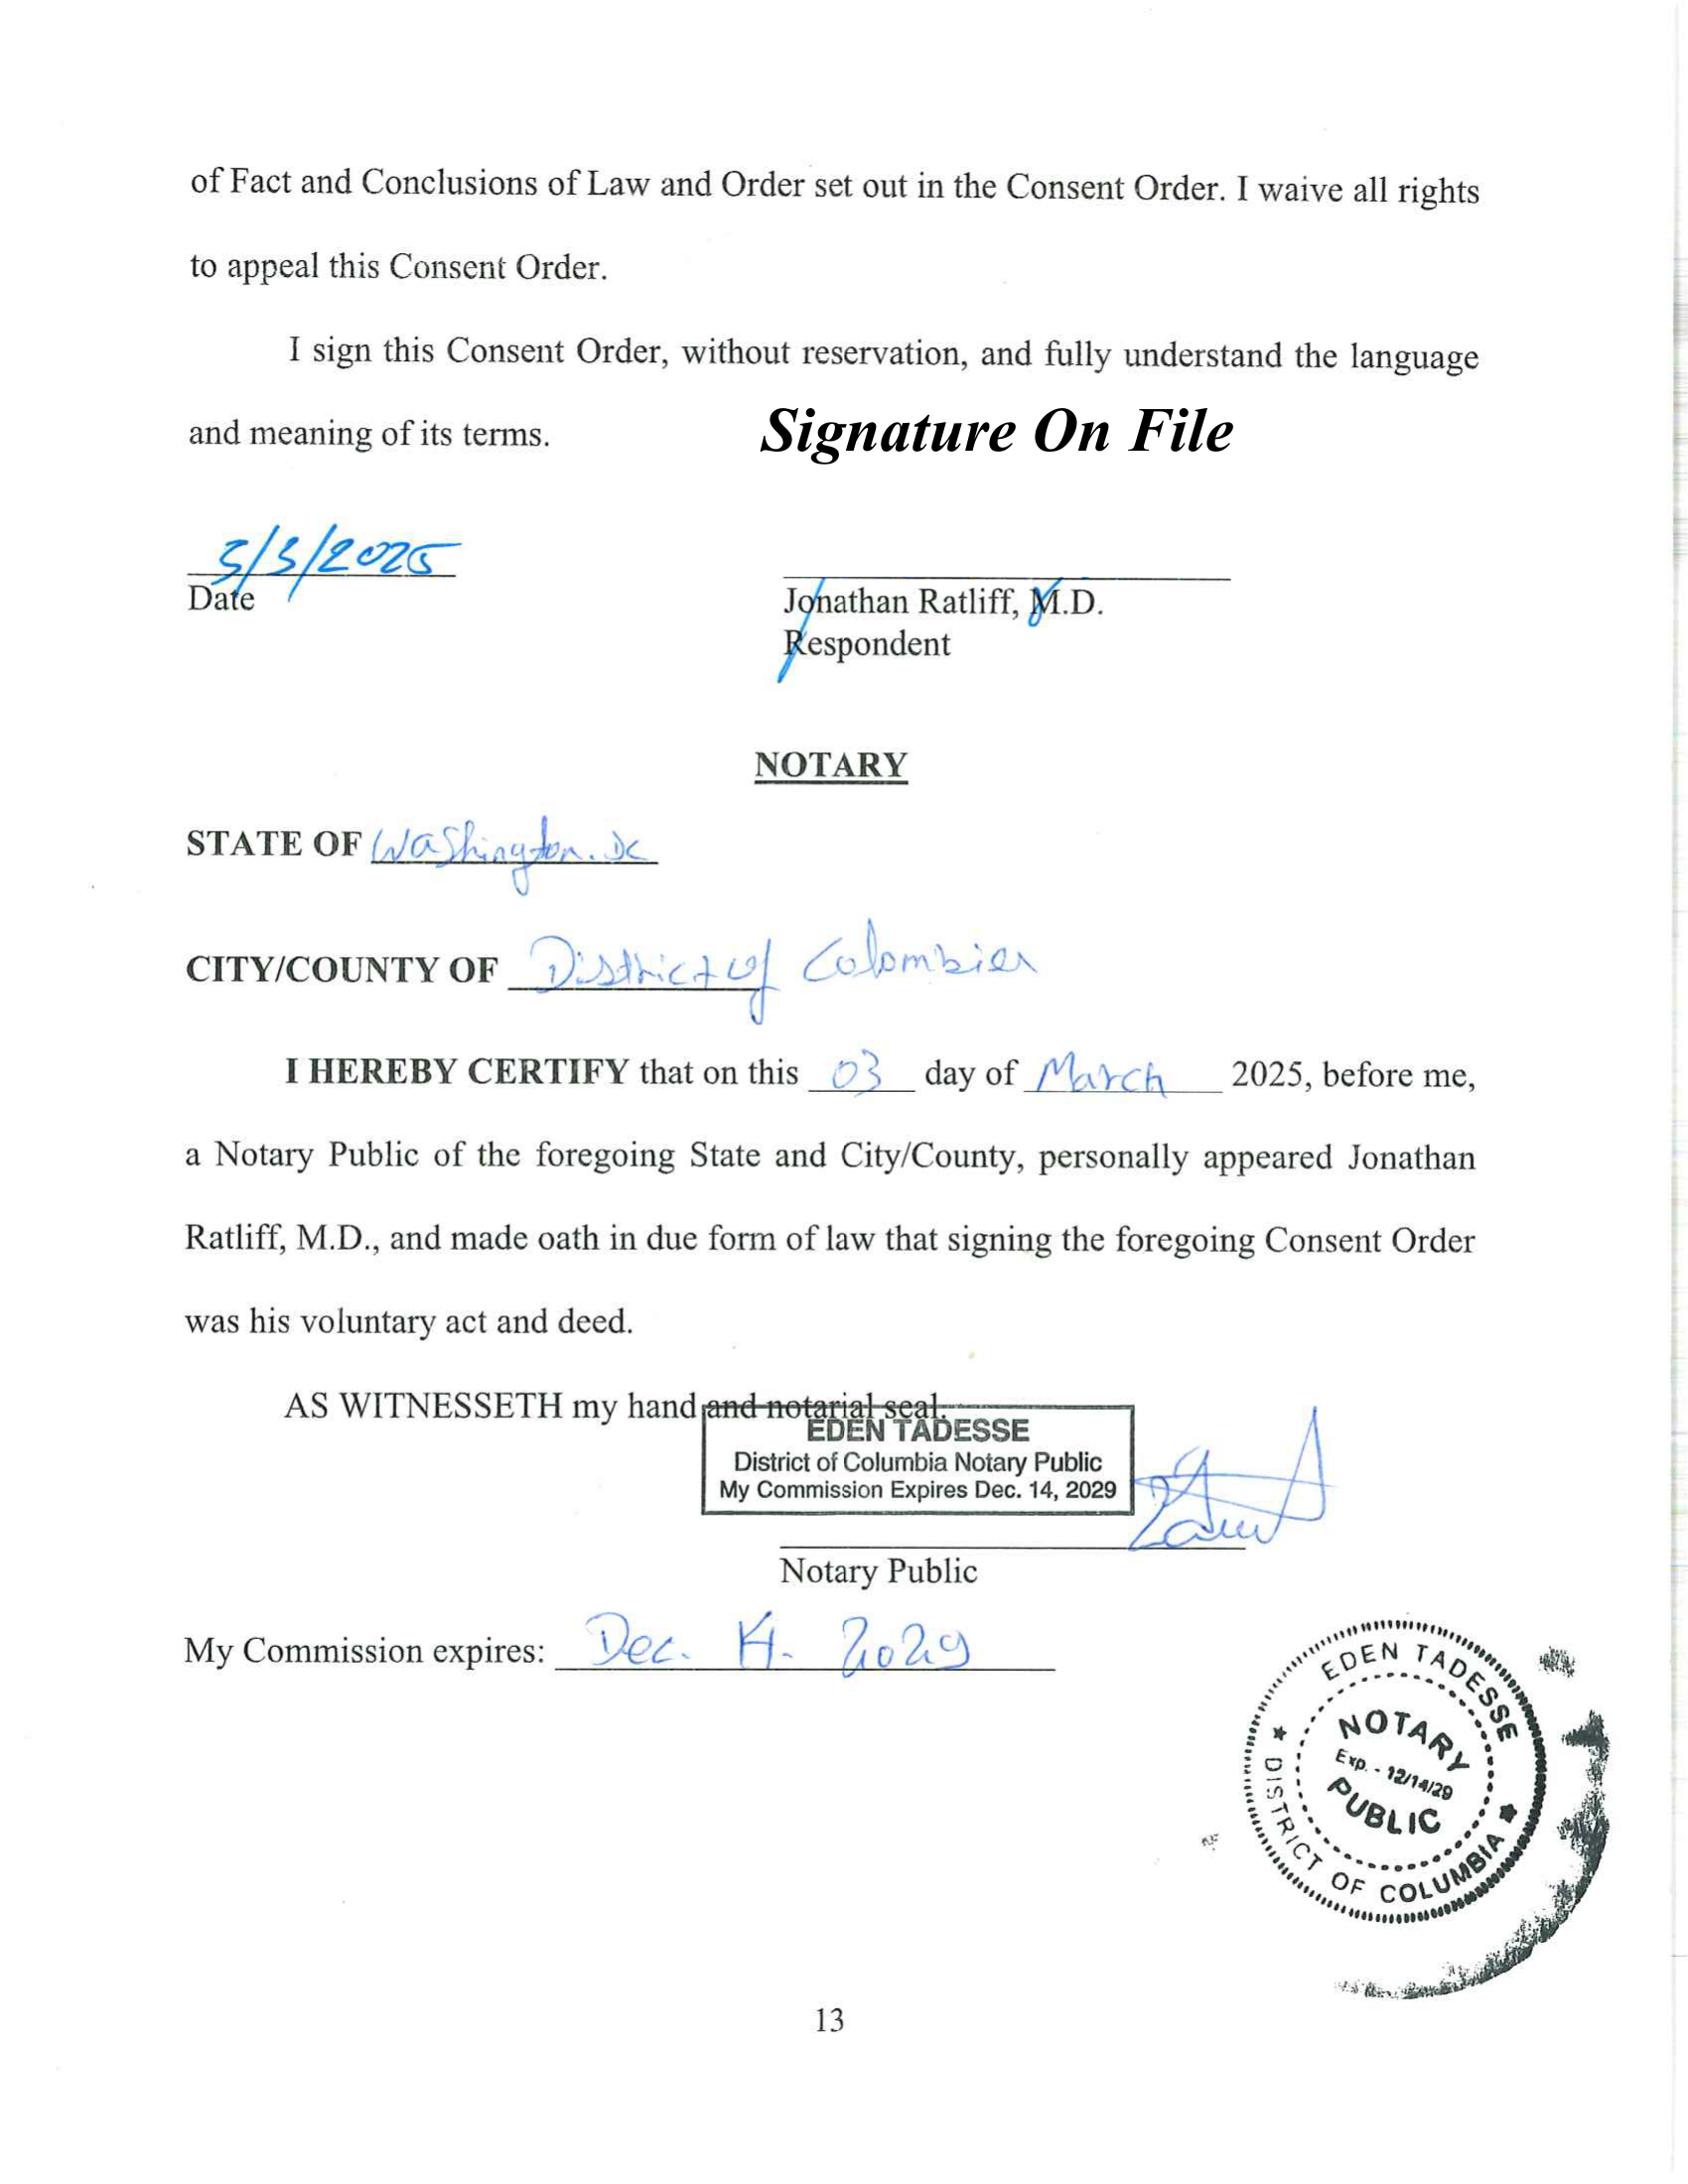 of Fact and Conclusions of Law and Order set out in the Consent Order. I waive all rights
to appeal this Consent Order.
I sign this Consent Order, without reservation, and fully understand the language
and meaning of its terms.
Signature On File
3/3/2025
Date
Jonathan Ratliff, M.D.
Respondent
NOTARY
STATE OF Washington. DC
CITY/COUNTY OF District of Colombia
I HEREBY CERTIFY that on this 03 day of March 2025, before me,
a Notary Public of the foregoing State and City/County, personally appeared Jonathan
Ratliff, M.D., and made oath in due form of law that signing the foregoing Consent Order
was his voluntary act and deed.
AS WITNESSETH my hand and notarial seal.
EDEN TADESSE
District of Columbia Notary Public
My Commission Expires Dec. 14, 2029
Notary Public
My Commission expires: Dec. 14. 2029
EDEN TADESSE
NOTARY
Exp. - 12/14/29
PUBLIC
DISTRICT OF COLUMBIA
13